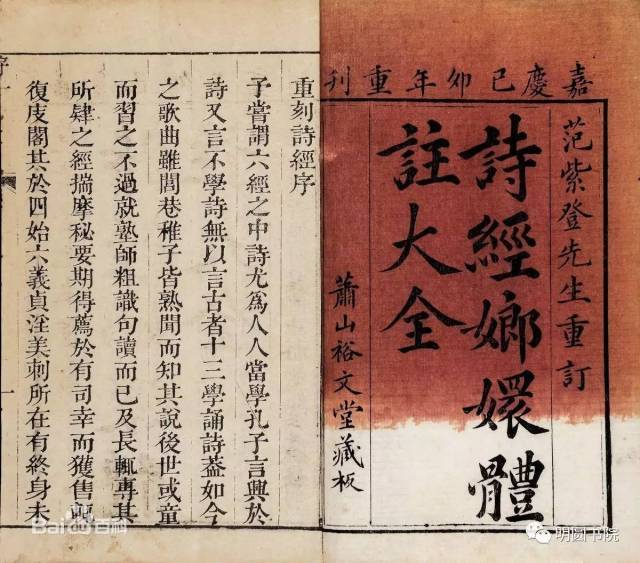 嘉慶已卯年重刊
范紫登先生重訂
詩經嫏嬛體
註大全
蕭山裕文堂藏板
重刻詩經序
子嘗謂六經之中詩尤爲人人當學孔子言興於
詩又言不學詩無以言古者十三學誦詩蓋如今
之歌曲雖閭巷稚子皆熟聞而知其說後世或童
而習之不過就塾師粗識句讀而已及長輒專其
所肄之經揣摩秘要期得薦於有司幸而獲售輒
復庋閣其於四始六義貞淫美刺所在有終身未
序
一
Bai百科
明圆书院